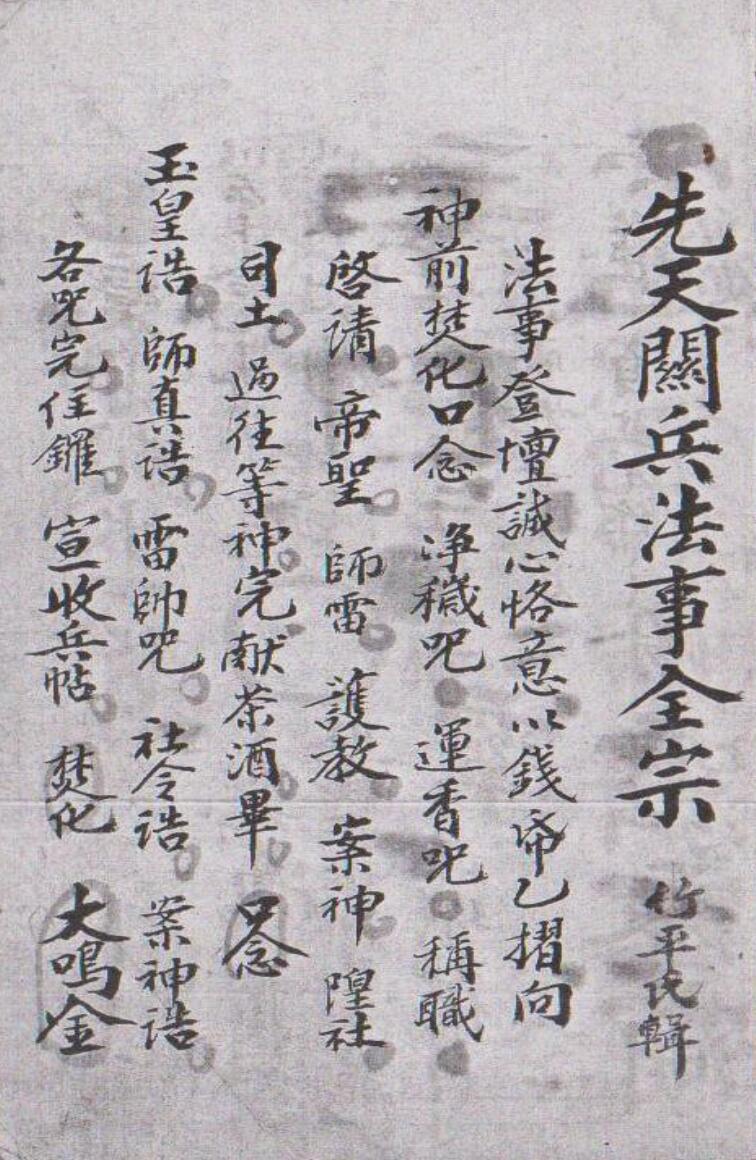 先天關兵法事全宗 竹平氏輯
法事登壇誠心恪意以錢帋乙摺向
神前焚化口念 淨穢咒 運香咒 稱職
啓請 帝聖 師雷 護教 案神 隍社
司土 過往等神完献茶酒畢 口念
玉皇誥 師真誥 雷帥咒 社令誥 案神誥
各咒完住鑼 宣收兵帖 焚化 大鳴金